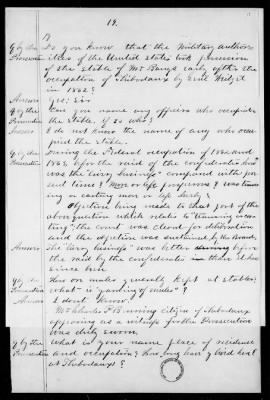 19.
Q by the Do you know that the Military author
Prosecution ities of the United States took possession
of the Stable of Mr Barys early after the
occupation of Thibodaux by Genl Weitzel
in 1862?
Answer Yes; Sir
Q by the Can you name any officers who occupied
Prosecution the Stable, if so who?
Answer I do not know the name of any who occu
pied the Stable.
Q by the During the Federal occupation of 1862 and
Prosecution 1863, before the raid of the confederates how
was the livery business compared with pre
sent time? More or less prosperous?
in casting more or less
Objection being made to that part of the
above question which relates to
the court was closed for deliberation
and the objection was sustained by the
Answer The livery business was better before
the raid by the confederates than it has
since been
Q by the How are males generally kept at stables;
Prosecution what is
Answer I dont know.
Mr Charles F citizen of Thibodaux
appearing as a witness for the Prosecution
was duly sworn.
Q by the What is your name place of residence
Prosecution and occupation? how long have you lived
at Thibodaux?